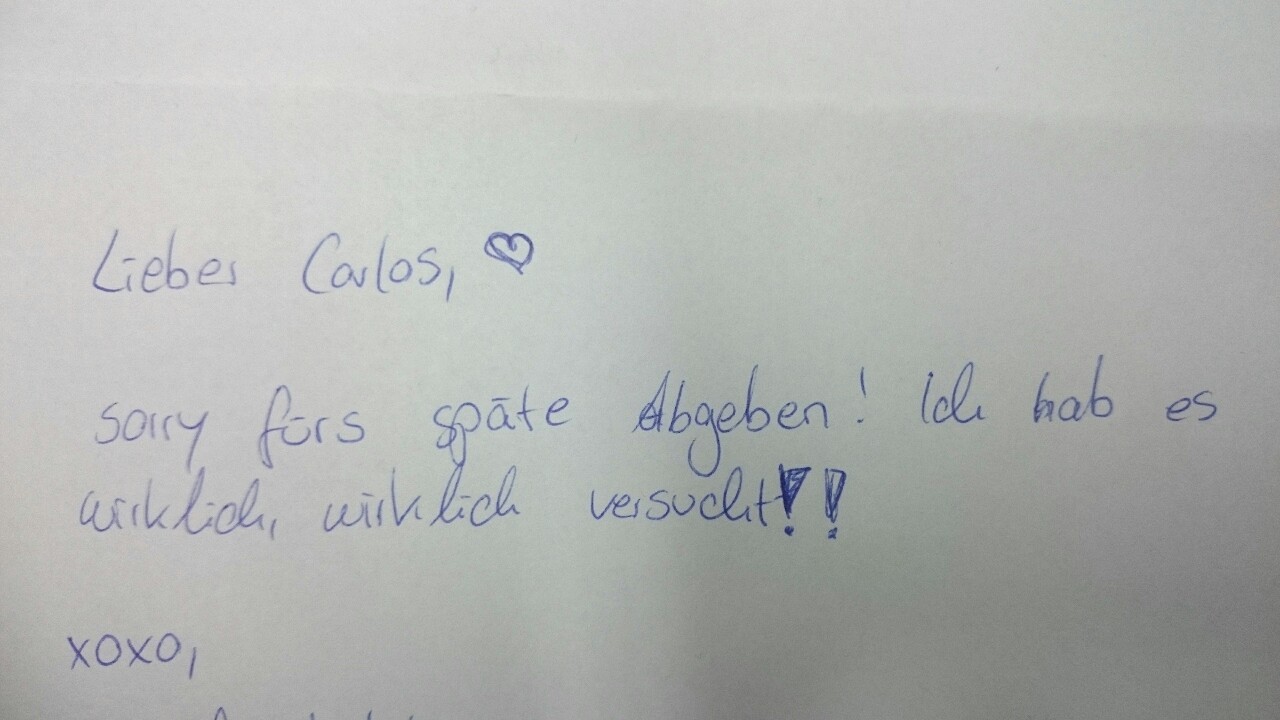 Lieber Carlos, ♡
sorry fürs späte Abgeben! Ich hab es
wirklich, wirklich versucht!!
xoxo,